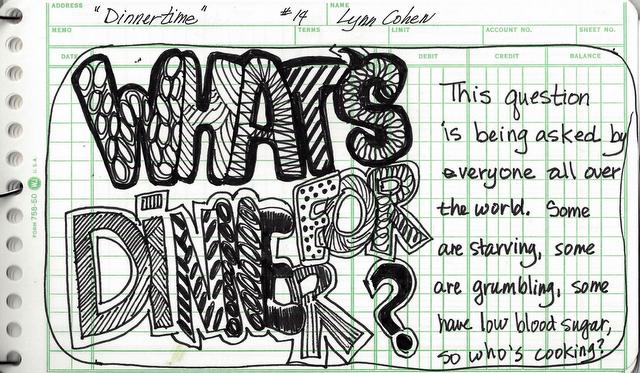 ADDRESS "Dinnertime" #14 NAME Lynn Cohen
MEMO TERMS LIMIT ACCOUNT NO. SHEET NO.
DATE DEBIT CREDIT BALANCE
WHAT'S
FOR
DINNER?
This question
is being asked by
everyone all over
the world. Some
are starving, some
are grumbling, some
have low blood sugar,
so who's cooking?
FORM 758-50 U.S.A.